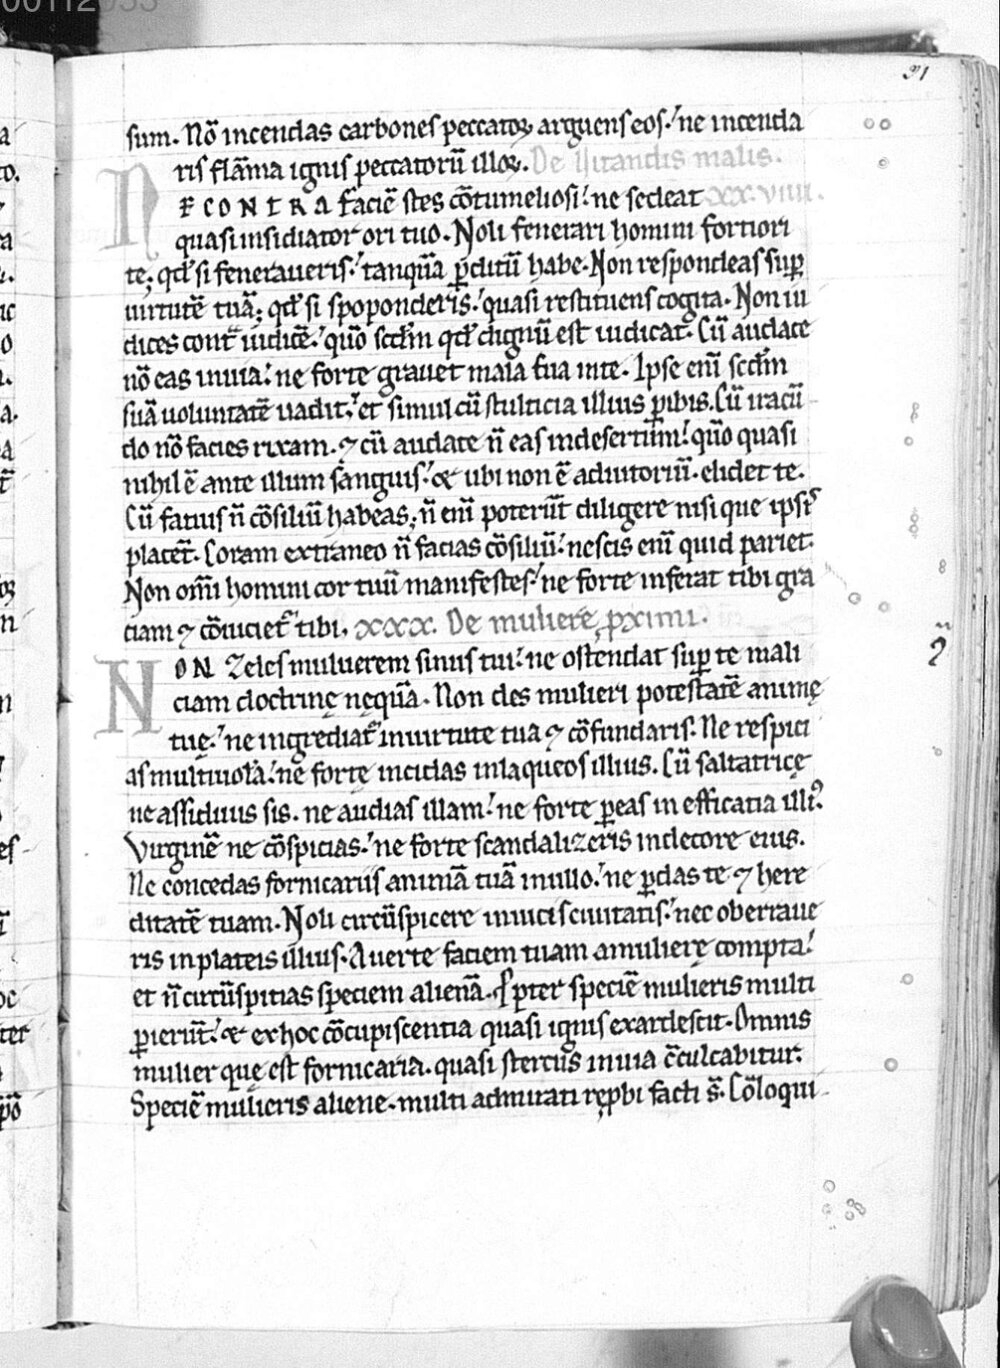 00112033
91
sum. Nō incendas carbones peccatoꝝ arguens eos. ne incenda
ris flāma ignis peccatorū illoꝝ. De uitandis malis.
NE CONTRA faciē stes cōtumeliosi. ne sedeat XX.VIIII.
quasi insidiator ori tuo. Noli fenerari homini fortiori
te; qđ si feneraueris. tanquā ꝑditū habe. Non respondeas suꝑ
uirtutē tuā; qđ si spoponderis. quasi restituens cogita. Non iu
dices cont̄ iudicē. quō scđm qđ dignū est iudicat. Cū audace
nō eas in uia. ne forte grauet mala sua in te. Ipse eni scđm
suā uoluntatē uadit. et simul cū stulticia illius ꝑibis. Cū iracū
do nō facies rixam. ⁊ cū audace n̄ eas in desertum. quō quasi
nihil ē ante illum sanguis. & ubi non ē adiutoriū. elidet te.
Cū fatuis n̄ cōsiliū habeas; n̄ eni poterūt diligere nisi que ipsis
placet̄. Coram extraneo n̄ facias cōsiliū. nescis eni quid pariet.
Non omi homini cor tuū manifestes. ne forte inferat tibi gra
ciam ⁊ cōuiciet̄ tibi. XXX. De muliere ꝓximi.
NON Zeles mulierem sinus tui. ne ostendat suꝑ te mali
ciam doctrinę nequā. Non des mulieri potestatē animę
tuę. ne ingrediat̄ in uirtute tua ⁊ cōfundaris. Ne respici
as multiuola. ne forte incidas in laqueos illius. Cū saltatrice
ne assiduus sis. ne audias illam. ne forte ꝑeas in efficatia illiꝰ.
Virginē ne cōspicias. ne forte scandalizeris in decore eius.
Ne concedas fornicariis animā tuā in ullo. ne ꝑdas te ⁊ here
ditatē tuam. Noli circūspicere in uicis ciuitatis. nec oberraue
ris in plateis illius. Auerte faciem tuam a muliere compta.
et n̄ circūspitias speciem alienā. Ꝓpter speciē mulieris multi
ꝑierūt. & ex hoc cōcupiscentia quasi ignis exardescit. Omnis
mulier que est fornicaria. quasi stercus in uia c̄culcabitur.
Speciē mulieris aliene. multi admirati reꝓbi facti s̄. Cōloqui